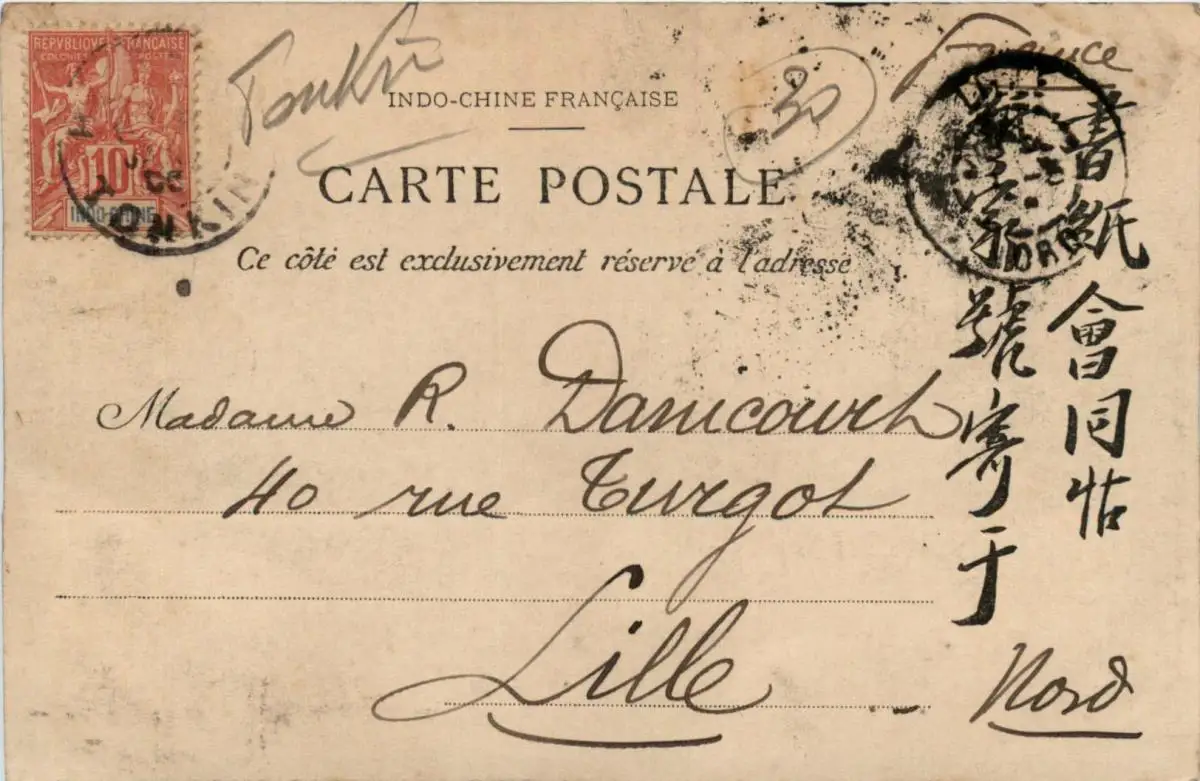 REPVBLIQVE FRANÇAISE
COLONIES POSTES
10
INDO-CHINE
TONKIN
Tonkin
30
France
INDO-CHINE FRANÇAISE
CARTE POSTALE
Ce côté est exclusivement réservé à l'adresse
LILLE
NORD
書紙會同帖
號寄于
Madame R. Danicourt
40 rue Turgot
Lille
Nord